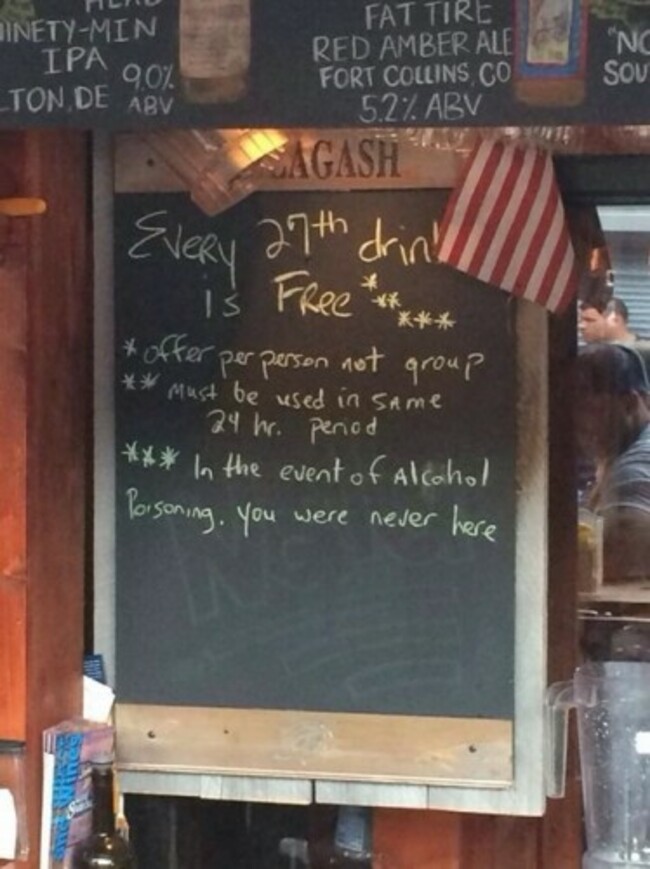 NINETY-MIN
IPA
9.0%
ABV
LTON, DE
FAT TIRE
RED AMBER ALE
FORT COLLINS, CO
5.2% ABV
"NO
SOU
LAGASH
Every 27th drin
is Free* ** ***
* offer per person not group
** Must be used in SAME
24 hr. period
*** In the event of Alcohol
Poisoning, you were never here